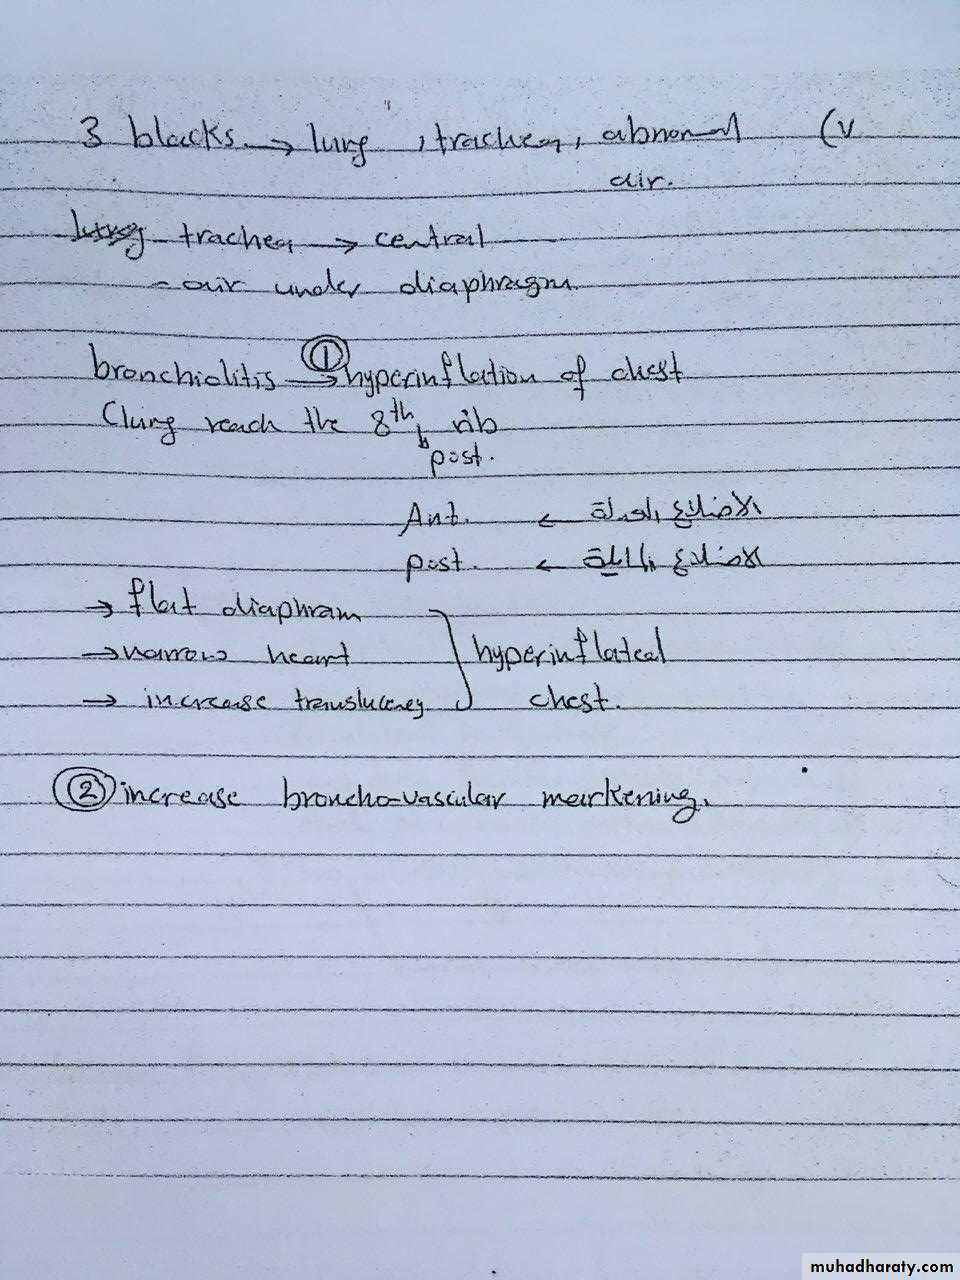 3 blacks → lung , trachea, abnormal (v
air.
trachea → central
- air under diaphragm.
bronchiolitis ① → hyperinflation of chest
(lung reach the 8th rib
post.
Ant. ← الاضلاع
post. ← الاضلاع المايلة
→ flat diaphram
→ narrow heart
→ increase translucency
hyperinflated
chest.
② increase broncho-vascular markening.
muhadharaty.com